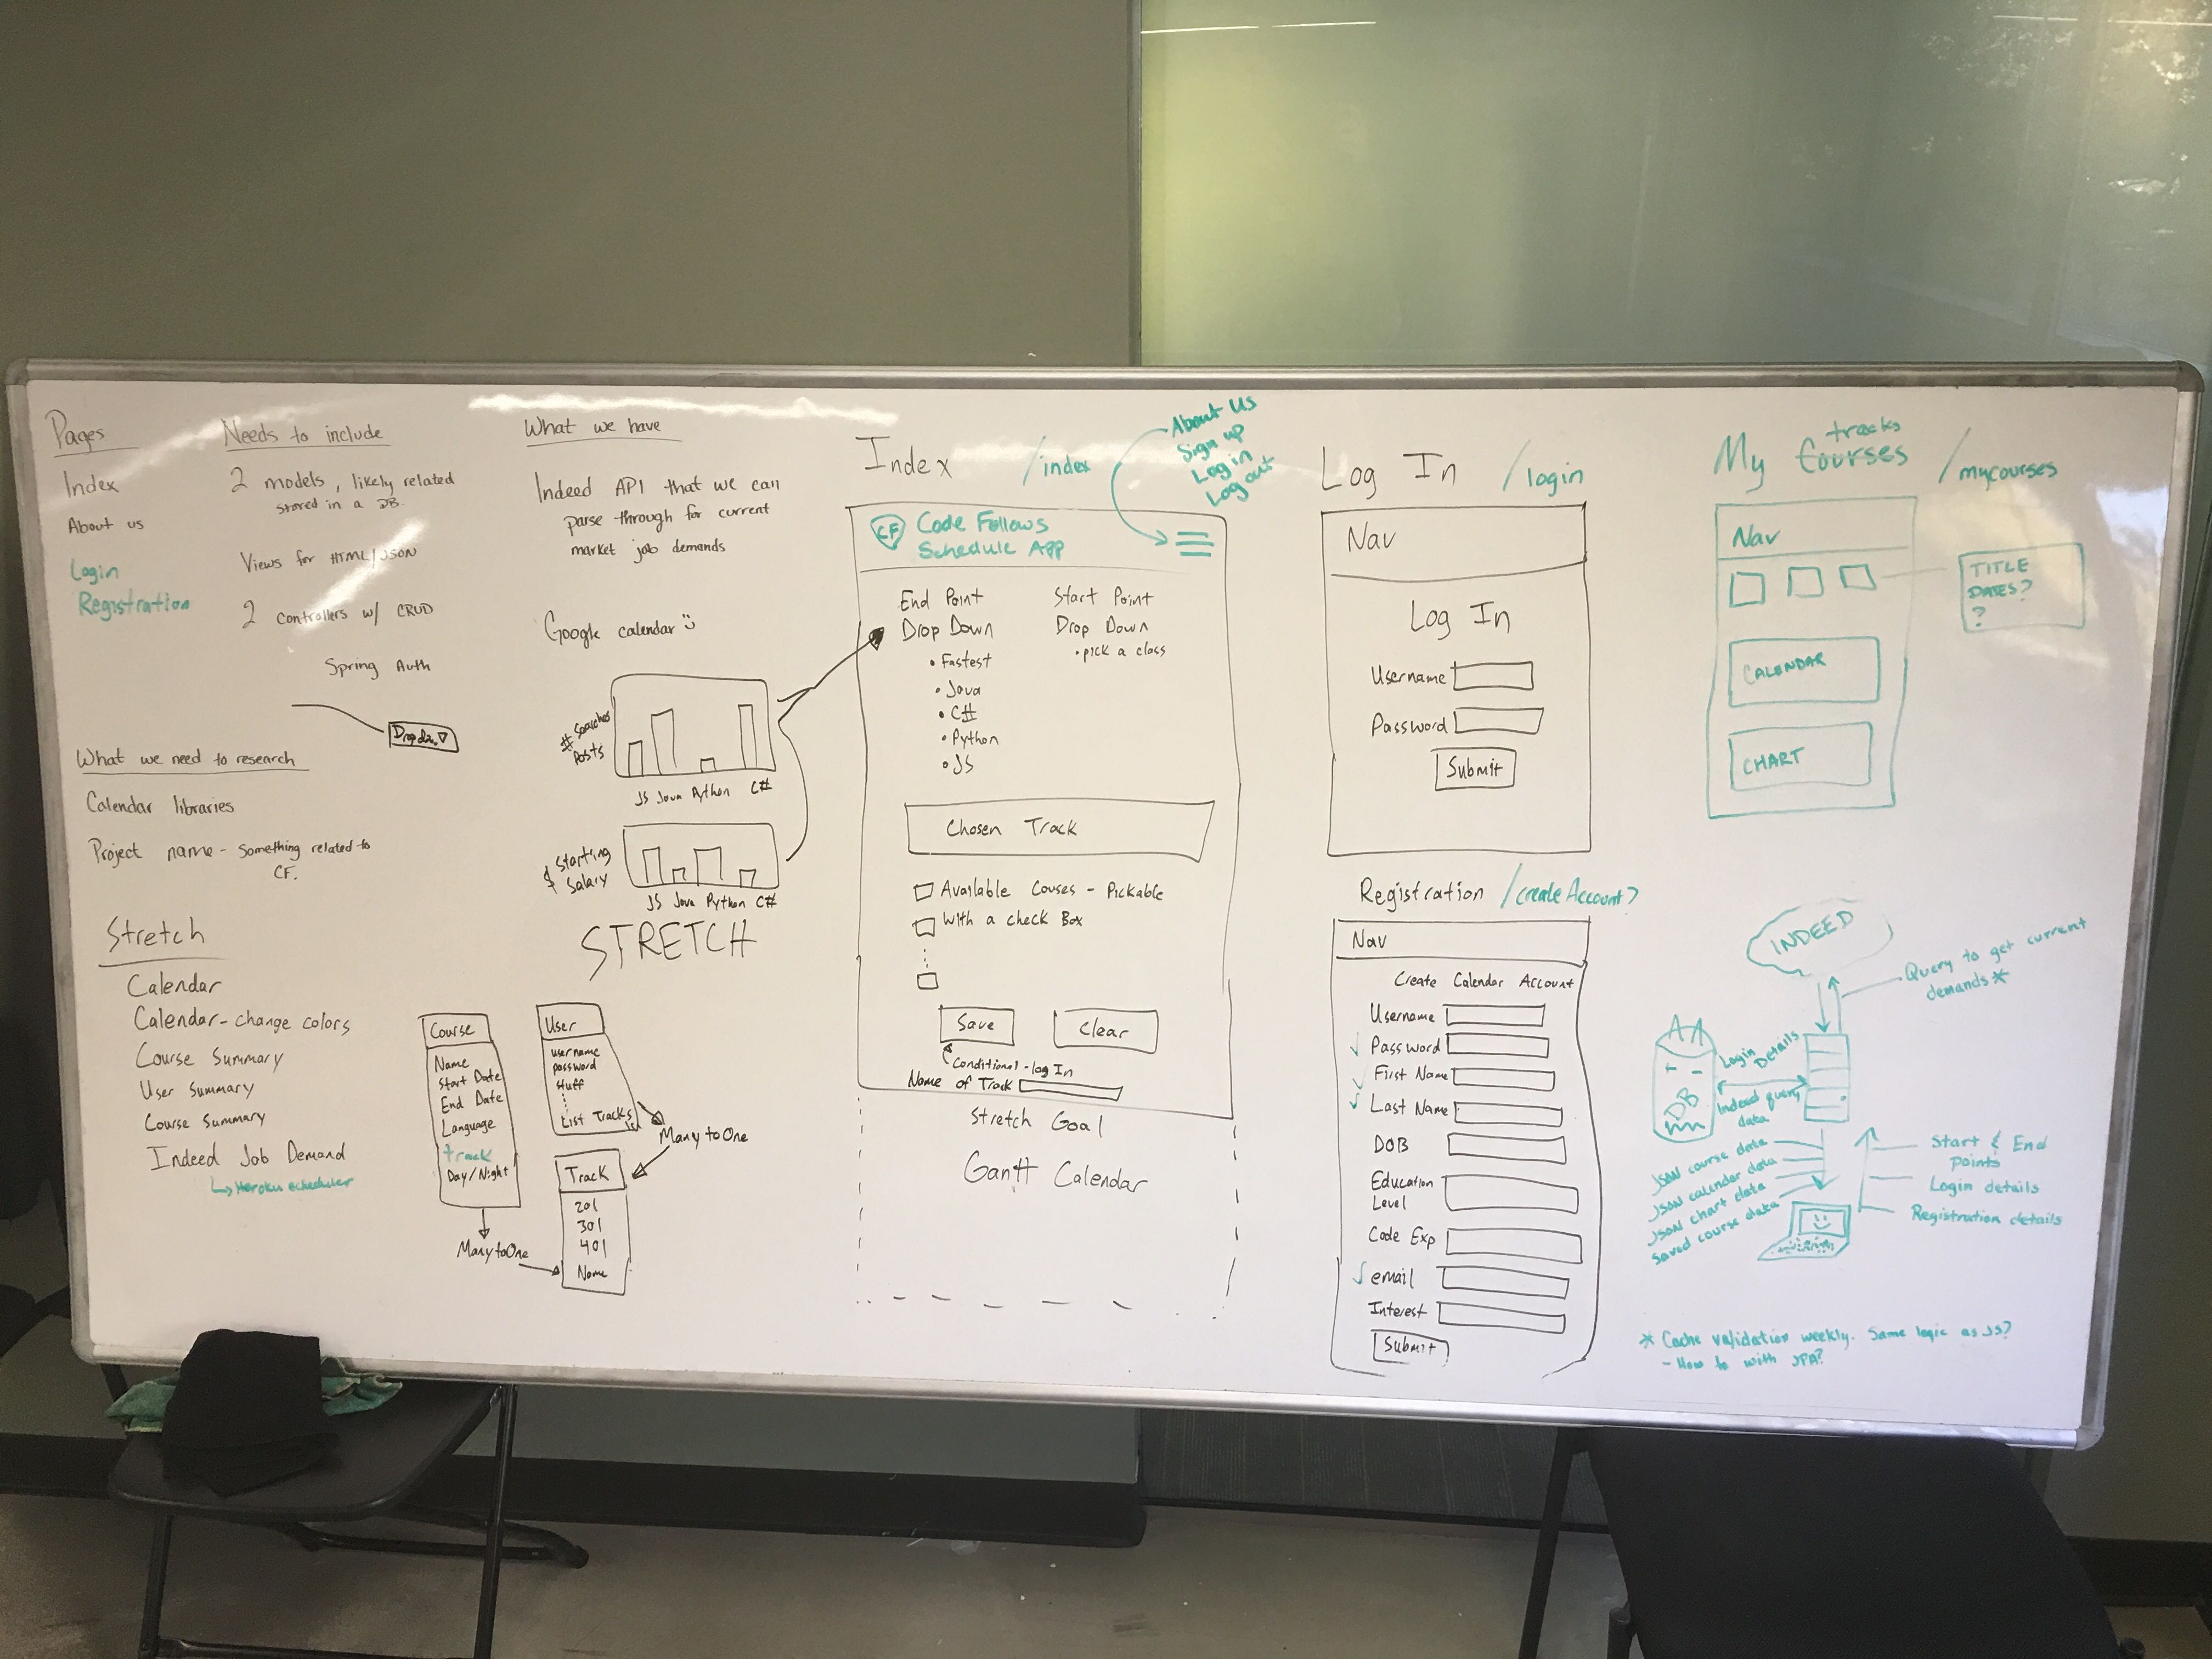 Pages
Index
About us
Login
Registration
Needs to include
2 models, likely related
stored in a DB.
Views for HTML/JSON
2 controllers w/ CRUD
Spring Auth
What we need to research
Calendar libraries
Project name - Something related to
CF.
Stretch
Calendar
Calendar - change colors
Course Summary
User Summary
Course Summary
Indeed Job Demand
Heroku scheduler
What we have
Indeed API that we can
parse through for current
market job demands
Google calendar
# Searches
Posts
JS Java Python C#
$ Starting
Salary
JS Java Python C#
STRETCH
Course
Name
Start Date
End Date
Language
track
Day/Night
Many to One
User
username
password
stuff
List Tracks
Many to One
Track
201
301
401
Name
Index /index
About Us
Sign up
Log in
Log out
CF
Code Follows
Schedule App
End Point
Drop Down
• Fastest
• Java
• C#
• Python
• JS
Start Point
Drop Down
• pick a class
Chosen Track
Available Couses - Pickable
with a check Box
Save
Clear
Conditional - log In
Name of Track
Stretch Goal
Gantt Calendar
Log In /login
Nav
Log In
Username
Password
Submit
Registration /createAccount?
Nav
Create Calendar Account
Username
Password
First Name
Last Name
DOB
Education
Level
Code Exp
email
Interest
Submit
tracks
My Courses /mycourses
Nav
TITLE
DATES?
?
CALENDAR
CHART
INDEED
Query to get current
demands*
Login
Details
DB
Indeed query
data
JSON course data
JSON calendar data
JSON chart data
Saved course data
Start & End
Points
Login details
Registration details
* Cache validation weekly. Same logic as JS?
- How to with JPA?